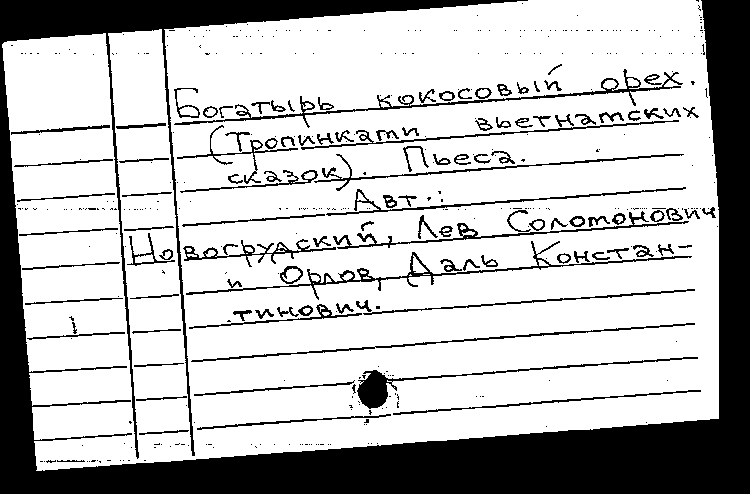 Богатырь кокосовый орех.
(Тропинками вьетнамских
сказок). Пьеса.
Авт.:
Новогрудский, Лев Соломонович
и Орлов, Даль Констан-
тинович.